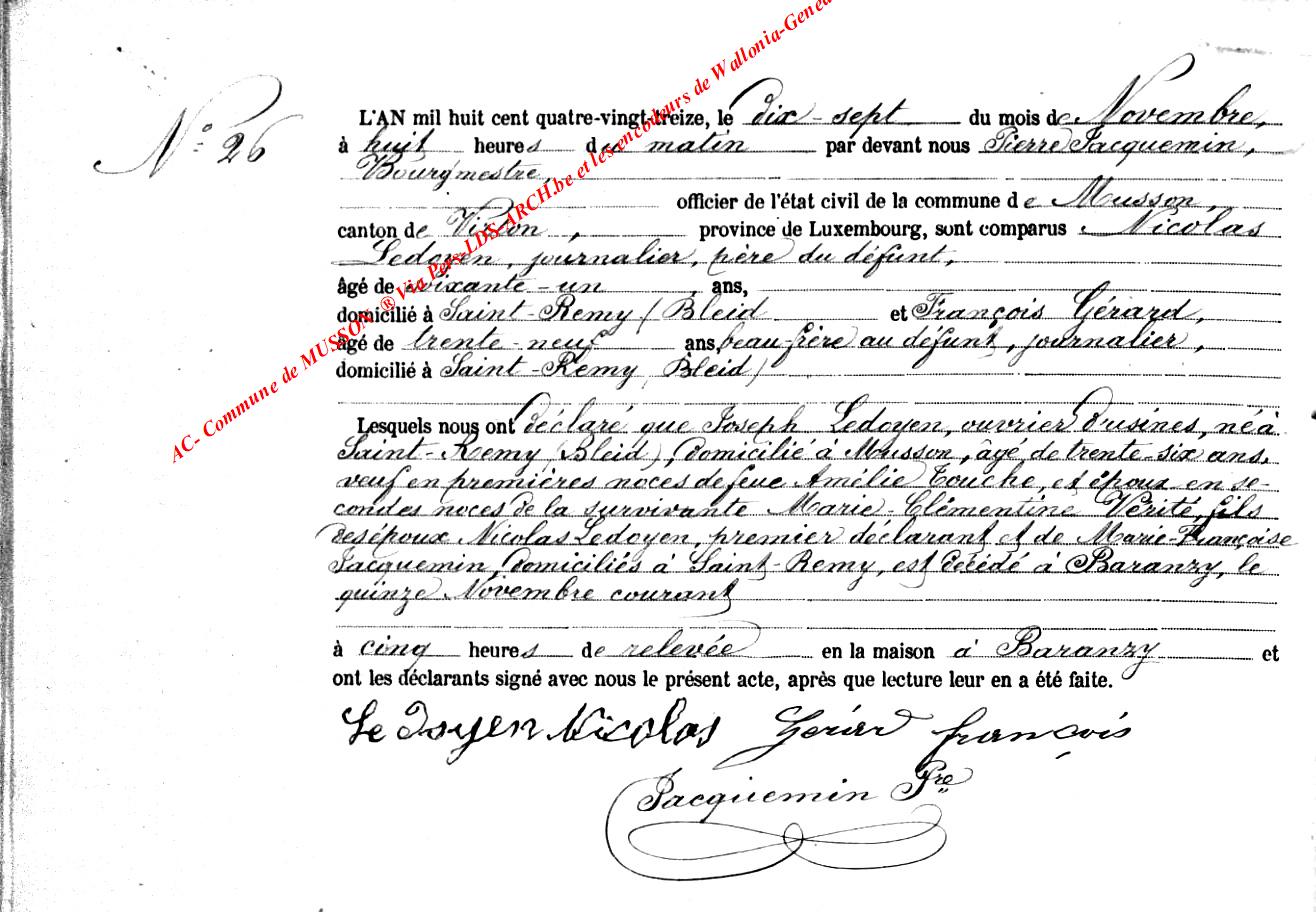 AC- Commune de MUSSON ® Via Pers-LDS-ARCH.be et les encodeurs de Wallonia-Genea
N° 26
L'AN mil huit cent quatre-vingt-treize, le dix-sept du mois de Novembre,
à huit heures du matin par devant nous Pierre Jacquemin,
Bourgmestre,
officier de l'état civil de la commune de Musson,
canton de Virton, province de Luxembourg, sont comparus Nicolas
Ledoyen, journalier, père du défunt,
âgé de soixante-un ans,
domicilié à Saint-Remy (Bleid et François Gérard,
âgé de trente-neuf ans, beau-frère au défunt, journalier,
domicilié à Saint-Remy (Bleid)
Lesquels nous ont déclaré que Joseph Ledoyen, ouvrier d'usines, né à
Saint-Remy (Bleid), domicilié à Musson, âgé de trente-six ans,
veuf en premières noces de feue Amélie Touche, et époux en se-
condes noces de la survivante Marie-Clémentine Vérité, fils
des époux Nicolas Ledoyen, premier déclarant et de Marie-Françoise
Jacquemin, domiciliés à Saint-Remy, est décédé à Baranzy, le
quinze Novembre courant
à cinq heures de relevée en la maison à Baranzy et
ont les déclarants signé avec nous le présent acte, après que lecture leur en a été faite.
Le Doyen Nicolas Gérard françois
Jacquemin Pre